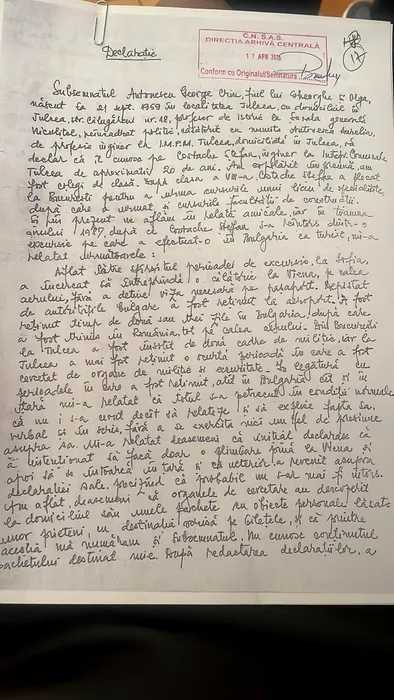 C.N.S.A.S.
DIRECTIA ARHIVĂ CENTRALĂ
17 APR 2025
Conform cu Originalul/Semnătura
17
Declarație
Subsemnatul Antonescu George Crin, fiul lui Gheorghe și Olga,
născut la 21 sept. 1959 în localitatea Tulcea, cu domiciliul în
Tulcea, str. nr. 18, profesor de istorie la Școala generală
Niculițel, neîncadrat politic, căsătorit cu numita Antonescu Aurelia,
de profesie inginer la I.M.P.M. Tulcea, domiciliată în Tulcea, vă
declar că îl cunosc pe Costache Ștefan, inginer la Întrep. Comunale
Tulcea de aproximativ 20 de ani. Am copilărit împreună, am
fost colegi de clasă. După clasa a VIII-a, Costache Ștefan a plecat
la București pentru a urma cursurile unui liceu de specialitate,
după care a urmat și cursurile facultății de construcții.
Și în prezent ne aflăm în relații amicale, iar în toamna
anului 1987, după ce Costache Ștefan s-a reîntors dintr-o
excursie pe care a efectuat-o în Bulgaria ca turist, mi-a
relatat următoarele:
Aflat către sfîrșitul perioadei de excursie, la Sofia,
a încercat să întreprindă o călătorie la Viena, pe calea
aerului, fără a deține viza necesară pe pașaport. Depistat
de autoritățile bulgare a fost reținut la aeroport. A fost
reținut timp de două sau trei zile în Bulgaria, după care
a fost trimis în România, tot pe calea aerului. Din București
la Tulcea a fost însoțit de două cadre de miliție, iar la
Tulcea a mai fost reținut o scurtă perioadă în care a fost
cercetat de organe de miliție și securitate. În legătură cu
perioadele în care a fost reținut, atît în Bulgaria cît și în
țară mi-a relatat că totul s-a petrecut în condiții normale
că nu i s-a cerut decît să relateze și să explice fapta sa,
verbal și în scris, fără a se exercita nici un fel de presiune
asupra sa. Mi-a relatat deasemeni că inițial declarase că
a intenționat să facă doar o plimbare pînă la Viena și
apoi să se întoarcă în țară și că ulterior a revenit asupra
declarației sale, precizînd că probabil nu s-ar mai fi întors.
Am aflat, deasemeni că organele de cercetare au descoperit
la domiciliul său unele pachete cu obiecte personale lăsate
unor prieteni, cu destinația scrisă pe biletele, și că printre
aceștia mă număram și subsemnatul. Nu cunosc conținutul
pachetului destinat mie. După redactarea declarațiilor, a